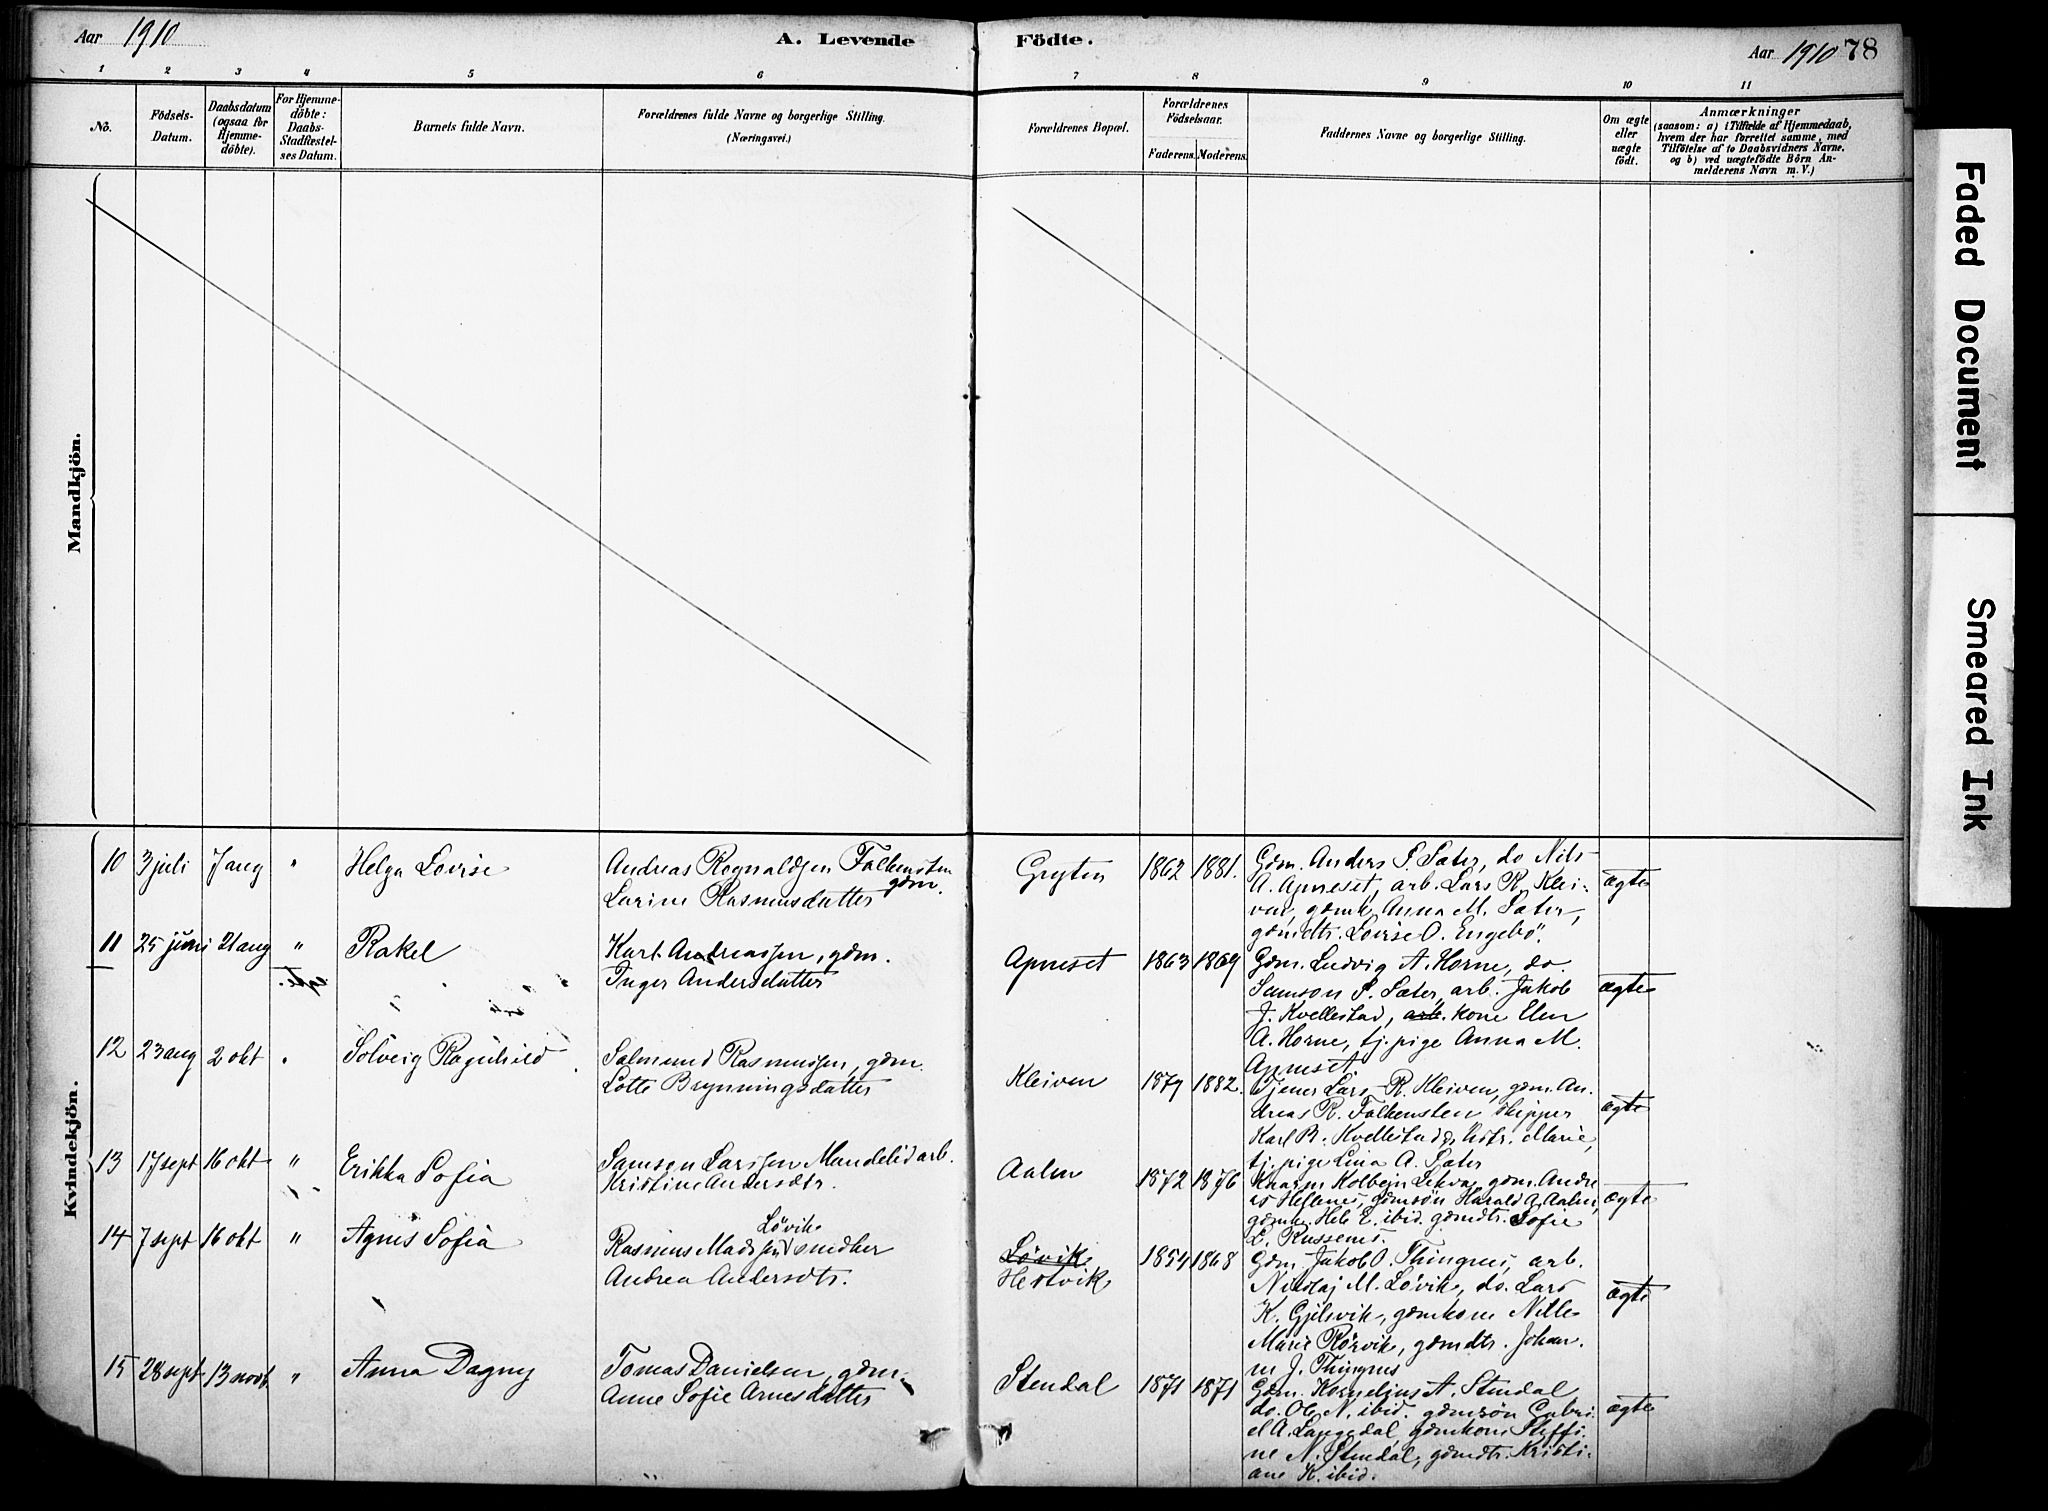 Aar 1910
A. Levende
Födte.
Aar 1910 78
1 2 3 4 5 6 7 8 9 10 11
No.
Födsels-
Datum.
Daabsdatum
(ogsaa for
Hjemme-
döbte).
For Hjemme-
döbte:
Daabs-
Stadfæstel-
ses Datum.
Barnets fulde Navn.
Forældrenes fulde Navne og borgerlige Stilling.
(Næringsvei.)
Forældrenes Bopæl.
Forældrenes
Födselsaar.
Faderens. Moderens.
Faddernes Navne og borgerlige Stilling.
Om ægte
eller
uægte
födt.
Anmærkninger
(saasom: a) i Tilfælde af Hjemmedaab,
hvem der har forrettet samme, med
Tilföielse af to Daabsvidners Navne,
og b) ved uægtefödte Börn An-
melderens Navn m. V.)
Mandkjön.
Kvindekjön.
10 3 juli 7 aug " Helga Lovise
Andreas Rognaldsen Falkensten
gdm.
Larine Rasmusdatter
Gryten 1862 1881.
Gdm. Anders S. Sæter, do Nils
A. Apneset, arb. Lars R. Klei-
ven, gdmk. Anna M. Sæter,
gdmdtr. Lovise O. Engebö.
ægte
11 25 juni 21 aug " Rakel
Karl Andreassen, gdm.
Inger Andersdatter
Apneset 1863 1869
Gdm. Ludvig A. Horne, do.
Samson S. Sæter, arb. Jakob
J. Kvellestad, arb. kone Elen
A. Horne, tj. pige Anna M.
Apneset.
ægte
12 23 aug 2 okt " Solveig Ragnhild
Salmund Rasmussen, gdm.
Lotte Brynningsdatter
Kleiven 1879 1882.
Tjener Lars R. Kleiven, gdm. An-
dreas R. Falkensten skipper
Karl B. Kvellestad & hstr. Marie,
tj. pige Lina A. Sæter
ægte
13 17 sept 16 okt " Erikka Sofia
Samson Larssen Mandelid arb.
Kristine Andersdtr.
Aalen 1872 1876
Kolbein Lekva, gdm. Andre
as Hellenes, gdmsön Harald A. Aalen,
gdmk. Hele E. ibid. gdmdtr. Sofie
L. Russenes.
ægte
14 7 sept 16 okt " Agnes Sofia
Lövik
Rasmus Madssen snedker
Andrea Andersdtr.
Lövik
Hestvik
1854 1868
Gdm. Jakob O. Thingnes, arb.
Nikolaj M. Lövik, do. Lars
K. Gjelsvik, gdmkone Nille
Marie Rörvik, gdmdtr. Johan-
ne J. Thingnes
ægte
15 28 sept 13 novb. " Anna Dagny
Tomas Danielsen, gdm.
Anne Sofie Arnesdatter
Stendal 1871 1871
Gdm. Kornelius A. Stendal
do. Ole N. ibid. gdmsön Gabri-
el A. Langedal, gdmkone Steffi-
ne N. Stendal, gdmdtr. Kristi-
ane K. ibid.
ægte
Faded Document
Smeared Ink